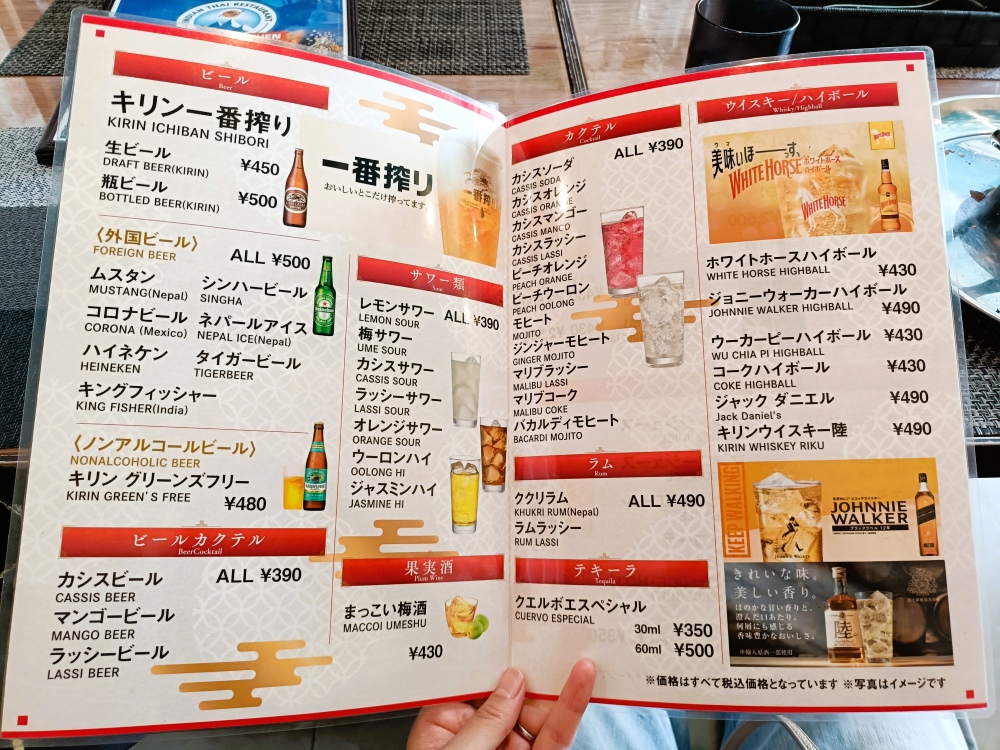 INDIAN THAI RESTAURANT
ビール
Beer
キリン一番搾り
KIRIN ICHIBAN SHIBORI
生ビール ¥450
DRAFT BEER(KIRIN)
瓶ビール ¥500
BOTTLED BEER(KIRIN)
一番搾り
おいしいとこだけ搾ってます
〈外国ビール〉 ALL ¥500
FOREIGN BEER
ムスタン シンハービール
MUSTANG(Nepal) SINGHA
コロナビール ネパールアイス
CORONA (Mexico) NEPAL ICE(Nepal)
ハイネケン タイガービール
HEINEKEN TIGERBEER
キングフィッシャー
KING FISHER(India)
〈ノンアルコールビール〉
NONALCOHOLIC BEER
キリン グリーンズフリー
KIRIN GREEN'S FREE
¥480
ビールカクテル
BeerCocktail
カシスビール ALL ¥390
CASSIS BEER
マンゴービール
MANGO BEER
ラッシービール
LASSI BEER
サワー類
Sour
レモンサワー ALL ¥390
LEMON SOUR
梅サワー
UME SOUR
カシスサワー
CASSIS SOUR
ラッシーサワー
LASSI SOUR
オレンジサワー
ORANGE SOUR
ウーロンハイ
OOLONG HI
ジャスミンハイ
JASMINE HI
果実酒
Plum Wine
まっこい梅酒
MACCOI UMESHU
¥430
カクテル
Cocktail
カシスソーダ ALL ¥390
CASSIS SODA
カシスオレンジ
CASSIS ORANGE
カシスマンゴー
CASSIS MANGO
カシスラッシー
CASSIS LASSI
ピーチオレンジ
PEACH ORANGE
ピーチウーロン
PEACH OOLONG
モヒート
MOJITO
ジンジャーモヒート
GINGER MOJITO
マリブラッシー
MALIBU LASSI
マリブコーク
MALIBU COKE
バカルディモヒート
BACARDI MOJITO
ラム
Rum
ククリラム ALL ¥490
KHUKRI RUM(Nepal)
ラムラッシー
RUM LASSI
テキーラ
Tequila
クエルボエスペシャル
CUERVO ESPECIAL
30ml ¥350
60ml ¥500
ウイスキー/ハイボール
Whisky/Highball
美味いほーーす。
WHITE HORSE ホワイトホース ハイボール
WHITE HORSE
ホワイトホースハイボール
WHITE HORSE HIGHBALL ¥430
ジョニーウォーカーハイボール
JOHNNIE WALKER HIGHBALL ¥490
ウーカーピーハイボール ¥430
WU CHIA PI HIGHBALL
コークハイボール ¥430
COKE HIGHBALL
ジャック ダニエル ¥490
Jack Daniel's
キリンウイスキー陸 ¥490
KIRIN WHISKEY RIKU
KEEP WALKING
JOHNNIE WALKER
JOHNNIE
WALKER
ブラックラベル 12年
きれいな味。
美しい香り。
ほのかな甘い香りと、
澄んだ口あたり。
何層にも感じる
香味豊かなおいしさ。
※輸入原酒一部使用
陸
※価格はすべて税込価格となっています ※写真はイメージです